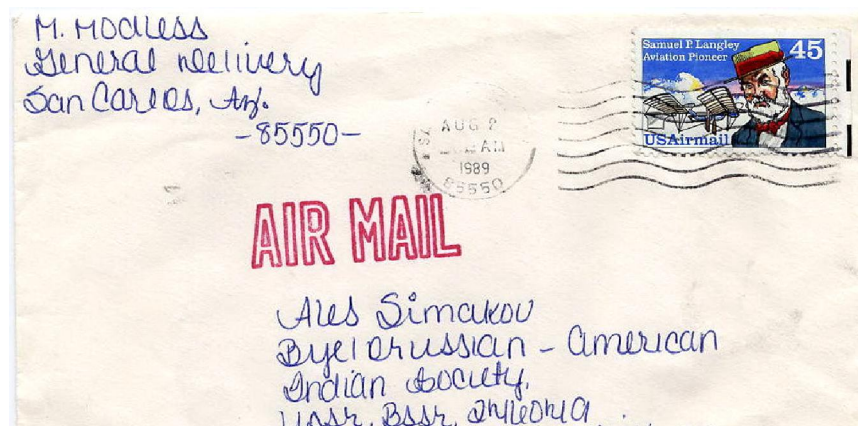 M. Modless
General Delivery
San Carlos, Az.
-85550-
AUG 2
AM
1989
85550
Samuel P. Langley
Aviation Pioneer
45
USAirmail
AIR MAIL
Ales Simakou
Byelorussian - American
Indian Society,
USSR, BSSR,